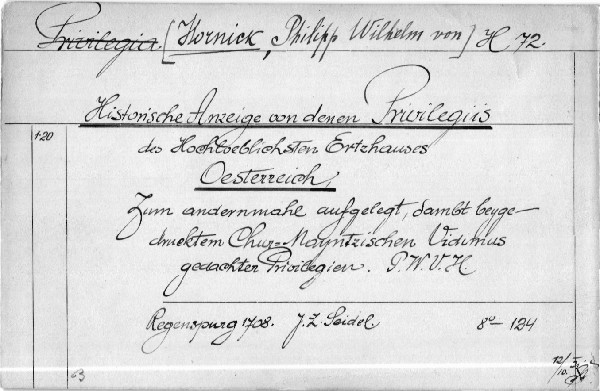 Privilegia. [Hornick, Philipp Wilhelm von] H 72.
Historische Anzeige von denen Privilegiis
+20
des Hochloeblichsten Ertzhauses
Oesterreich,
Zum andernmahl aufgelegt, sambt beyge-
drucktem Chur=Mayntzischen Vidimus
gedachter Privilegien. P.W.V.H.
Regenspurg 1708. J.Z. Seidel. 8° – 134
B